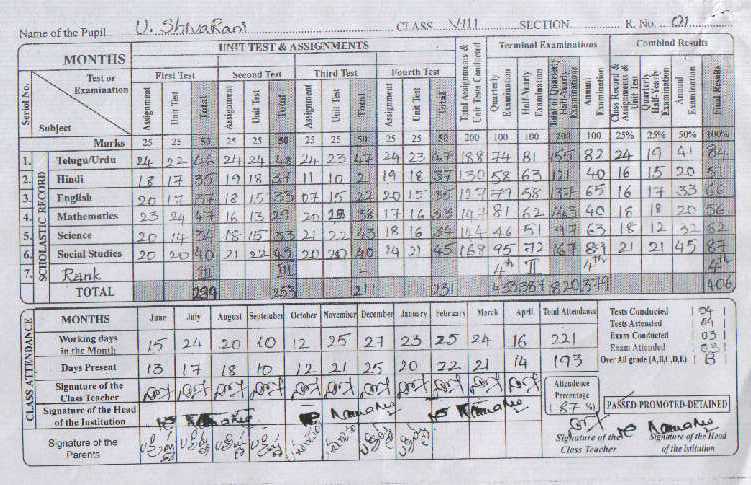 Name of the Pupil U. ShivaRani CLASS VIII SECTION. R. No. 01
UNIT TEST & ASSIGNMENTS Terminal Examinations Combind Results
MONTHS First Test Second Test Third Test Fourth Test
Serial No. Test or Examination Subject Assignment Unit Test Total Assignment Unit Test Total Assignment Unit Test Total Assignment Unit Test Total Total Assignments & Unit Tests Conducted Quarterly Examination Half-Yearly Examination Annual Examination Class Record & Assignments & Unit Test Quarterly Half-Yearly Examination Annual Examination Final Results
Marks 25 25 50 25 25 50 25 25 50 25 25 50 200 100 100 200 100 25% 25% 50% 100%
SCHOLASTIC RECORD
1. Telugu/Urdu 24 22 46 24 24 48 24 23 47 24 23 47 188 74 81 155 82 24 19 41 84
2. Hindi 18 17 35 19 18 37 11 10 19 18 37 130 58 63 121 40 16 15 20 51
3. English 20 17 37 18 15 33 07 15 22 20 15 35 127 79 58 137 65 16 17 33 66
4. Mathematics 23 24 47 16 13 29 20 38 17 16 33 147 81 62 143 40 18 18 20 56
5. Science 20 14 34 18 15 33 21 22 43 18 16 34 144 46 51 97 63 18 12 32 62
6. Social Studies 20 20 40 21 22 43 20 20 40 24 21 45 168 95 72 167 89 21 21 45 87
7. Rank III III 4th II 4th 4th
TOTAL 239 253 211 231 433 387 820 379 406
CLASS ATTENDANCE
MONTHS June July August September October November December January February March April Total Attendance
Working days in the Month 15 24 20 10 12 25 27 23 25 24 16 221
Days Present 13 17 18 10 12 21 25 20 22 21 14 193
Tests Conducted 04
Tests Attended 04
Exam Conducted 03
Exam Attended 03
Over All grade (A,B,C,D,E) B
Signature of the Class Teacher
Attendence Percentage 87 %
PASSED-PROMOTED-DETAINED
Signature of the Head of the Institution
Signature of the Parents
Signature of the Class Teacher
Signature of the Head of the Intitation